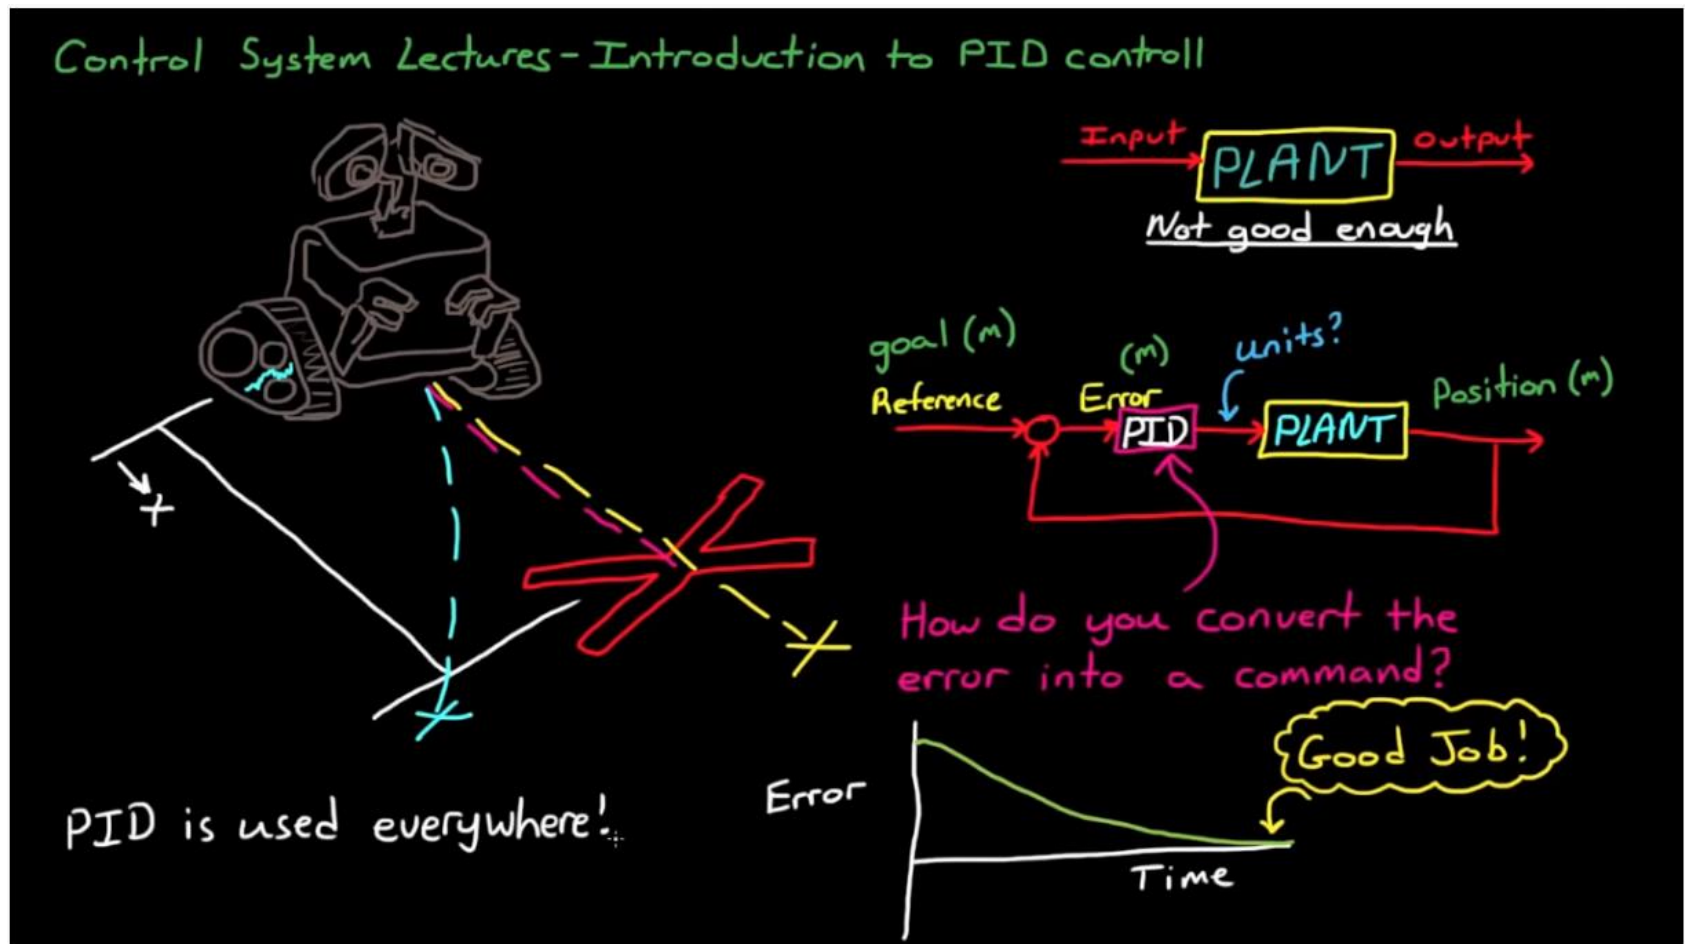 Control System Lectures - Introduction to PID controll
Input
PLANT
output
Not good enough
goal (m)
(m)
units?
Reference
Error
Position (m)
PID
PLANT
How do you convert the
error into a command?
Good Job!
Error
Time
PID is used everywhere!